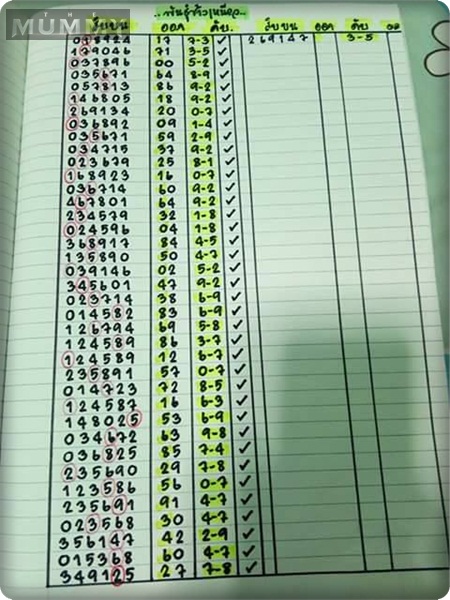 MUM
..พันธุ์ตัวเหนียว..
วิ่งบน ออก ดับ. วิ่งบน ออก ดับ ออ
018924 17 7-3 ✓ 269147 3-5
179046 71 3-5 ✓
037896 00 5-2 ✓
035671 64 8-9 ✓
057813 86 9-2 ✓
146805 18 9-2 ✓
269134 20 0-7 ✓
036892 09 1-4 ✓
035671 59 2-9 ✓
034715 37 9-2 ✓
023679 25 8-1 ✓
168923 16 0-7 ✓
036714 60 9-2 ✓
467801 64 9-2 ✓
234579 32 1-8 ✓
024596 04 1-8 ✓
368917 84 4-5 ✓
135890 50 4-7 ✓
039146 02 5-2 ✓
345601 47 9-2 ✓
023714 38 6-9 ✓
014582 83 6-9 ✓
126794 69 5-8 ✓
124589 86 3-7 ✓
124589 12 6-7 ✓
235891 57 0-7 ✓
014723 72 8-5 ✓
124587 16 6-3 ✓
148025 53 6-9 ✓
034672 63 9-8 ✓
036825 85 7-4 ✓
235690 29 7-8 ✓
123586 56 0-7 ✓
235691 91 4-7 ✓
023568 30 4-7 ✓
356147 42 2-9 ✓
015368 60 4-7 ✓
349125 27 7-8 ✓